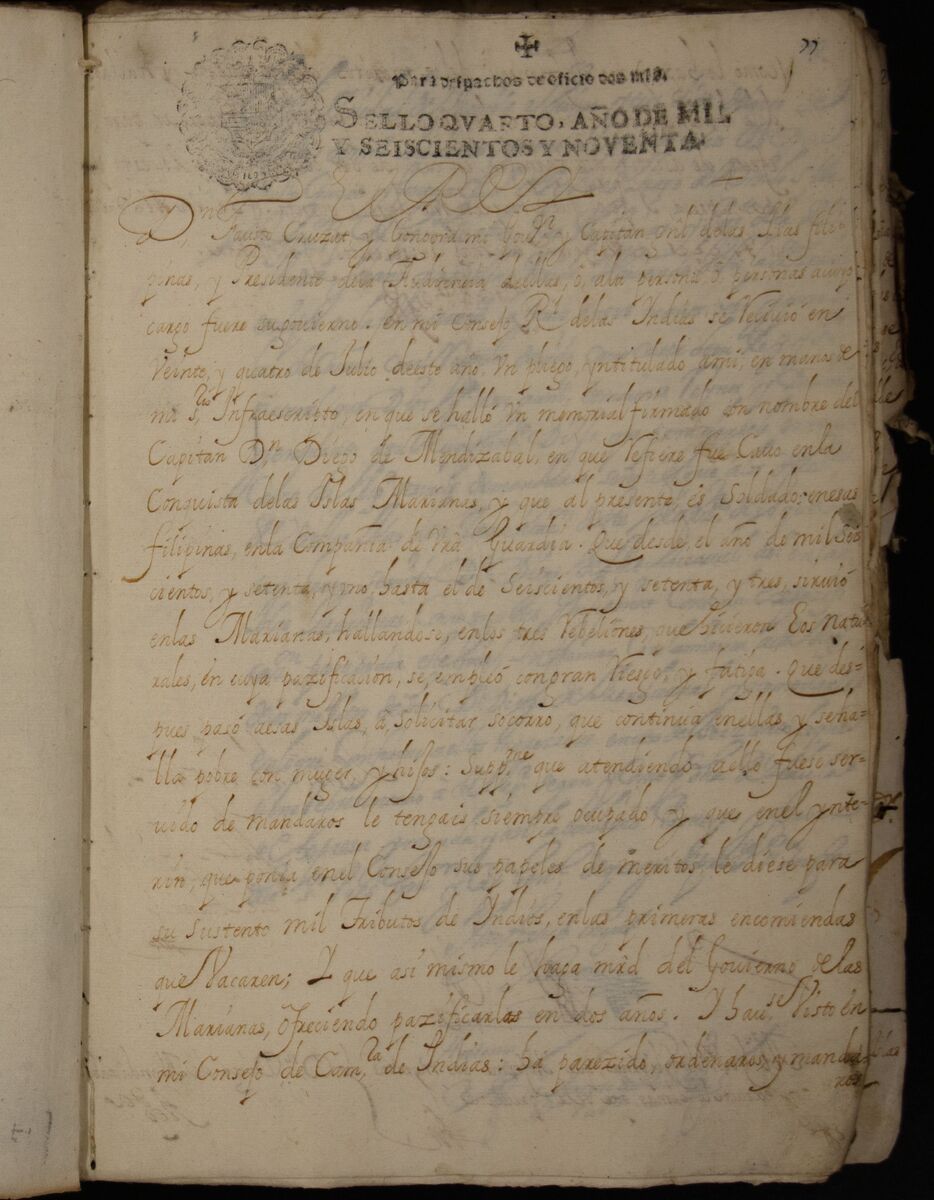 77
✠
Para despachos de oficio dos mrs.
SELLO QVARTO, AÑO DE MIL
Y SEISCIENTOS Y NOVENTA.
El Rey
Dn Fausto Cruzat, y Gongora mi Gour. y Capitan gnl delas Islas fili-
pinas, y Presidente dela Audiencia dellas, ò, ala persona, ò personas acuyo
cargo fuere sugouierno. En mi Consejo Rl. delas Indias se Reciuió en
veinte, y quatro de Julio deeste año, Vn pliego, yntitulado ami, en manos de
mi Srio Infraescripto, en que se halló Vn memorial firmado con nombre del
Capitan Dn. Diego de Mendizabal, en que Refiere fue Cauo enla
Conquista delas Islas Marianas, y que al presente, es Soldado enesas
filipinas, enla Compañia de Vra Guardia. Que desde, el año de mil Seis
cientos, y setenta, y uno, hasta el de Seiscientos, y setenta, y tres, siruió
enlas Marianas, hallandose, enlas tres Rebeliones, que hicieron Los natu-
rales, en cuya pazificación, se, empleó congran Riesgo, y fatiga. Que des-
pues pasó aesas Islas, á, solicitar socorro, que continúa enellas, y seha-
lla pobre con muger, y hijos: Suppne. que atendiendo aello fuese ser-
uido de mandaros le tengais siempre ocupado, y que enel ynte-
rin, que ponia enel Consejo sus papeles de meritos, le diese para
su sustento mil Tributos de Yndios, enlas primeras encomiendas
que Vacaren; Y que asi mismo le haga mrd del Gouierno delas
Marianas, ofreciendo pazificarlas en dos años. Y hause. Visto en
mi Consejo de Cam.ra de Indias: ha parezido, ordenaros, y manda
ros